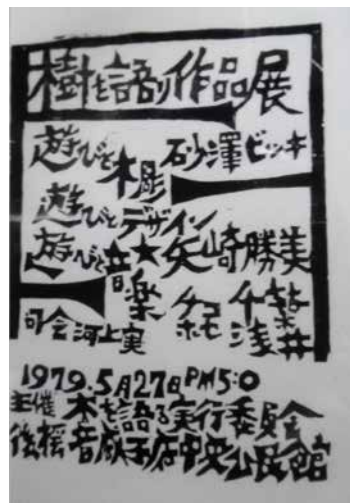 樹を語り作品展
遊びと木彫 砂澤ビッキ
遊びとデザイン★矢崎勝美
遊びと音楽
司会 河上実
1979.5月27日PM5:0
主催 木を語る実行委員会
後援 音威子府中央公民館